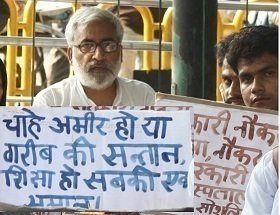 चाहे अमीर हो या
गरीब की सन्तान,
शिक्षा हो सबकी एक
समान।
कारी नौक
नौक
रकारी
स्पताल